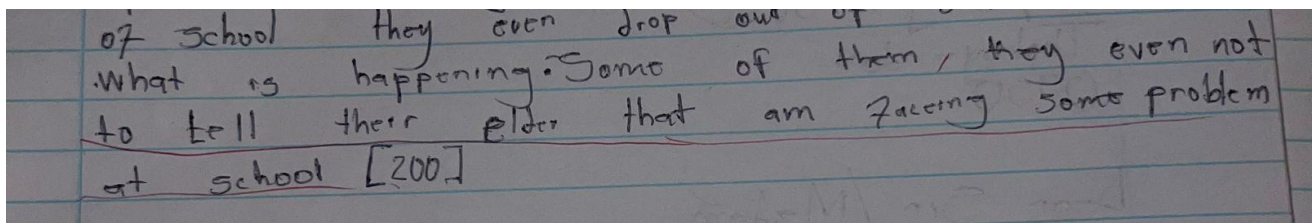 of school they even drop out of
what is happening. Some of them, they even not
to tell their elder that am faceing some problem
at school [200]